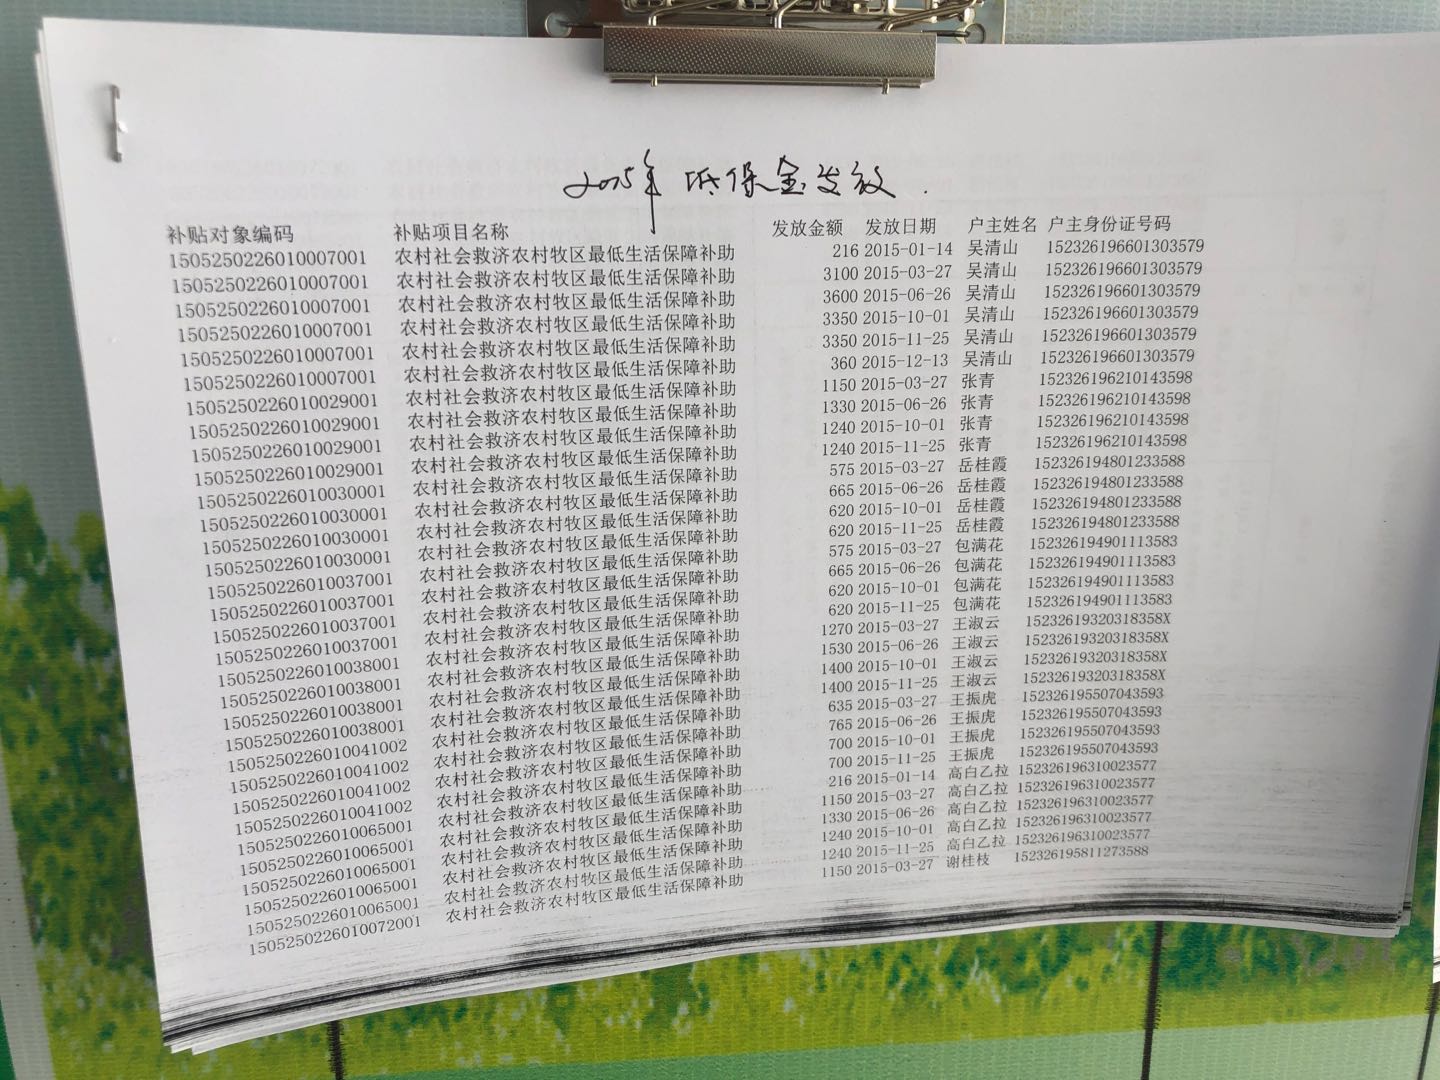 2015年低保金发放.
补贴对象编码 补贴项目名称 发放金额 发放日期 户主姓名 户主身份证号码
1505250226010007001 农村社会救济农村牧区最低生活保障补助 216 2015-01-14 吴清山 152326196601303579
1505250226010007001 农村社会救济农村牧区最低生活保障补助 3100 2015-03-27 吴清山 152326196601303579
1505250226010007001 农村社会救济农村牧区最低生活保障补助 3600 2015-06-26 吴清山 152326196601303579
1505250226010007001 农村社会救济农村牧区最低生活保障补助 3350 2015-10-01 吴清山 152326196601303579
1505250226010007001 农村社会救济农村牧区最低生活保障补助 3350 2015-11-25 吴清山 152326196601303579
1505250226010007001 农村社会救济农村牧区最低生活保障补助 360 2015-12-13 吴清山 152326196601303579
1505250226010029001 农村社会救济农村牧区最低生活保障补助 1150 2015-03-27 张青 152326196210143598
1505250226010029001 农村社会救济农村牧区最低生活保障补助 1330 2015-06-26 张青 152326196210143598
1505250226010029001 农村社会救济农村牧区最低生活保障补助 1240 2015-10-01 张青 152326196210143598
1505250226010029001 农村社会救济农村牧区最低生活保障补助 1240 2015-11-25 张青 152326196210143598
1505250226010030001 农村社会救济农村牧区最低生活保障补助 575 2015-03-27 岳桂霞 152326194801233588
1505250226010030001 农村社会救济农村牧区最低生活保障补助 665 2015-06-26 岳桂霞 152326194801233588
1505250226010030001 农村社会救济农村牧区最低生活保障补助 620 2015-10-01 岳桂霞 152326194801233588
1505250226010030001 农村社会救济农村牧区最低生活保障补助 620 2015-11-25 岳桂霞 152326194801233588
1505250226010037001 农村社会救济农村牧区最低生活保障补助 575 2015-03-27 包满花 152326194901113583
1505250226010037001 农村社会救济农村牧区最低生活保障补助 665 2015-06-26 包满花 152326194901113583
1505250226010037001 农村社会救济农村牧区最低生活保障补助 620 2015-10-01 包满花 152326194901113583
1505250226010037001 农村社会救济农村牧区最低生活保障补助 620 2015-11-25 包满花 152326194901113583
1505250226010038001 农村社会救济农村牧区最低生活保障补助 1270 2015-03-27 王淑云 15232619320318358X
1505250226010038001 农村社会救济农村牧区最低生活保障补助 1530 2015-06-26 王淑云 15232619320318358X
1505250226010038001 农村社会救济农村牧区最低生活保障补助 1400 2015-10-01 王淑云 15232619320318358X
1505250226010038001 农村社会救济农村牧区最低生活保障补助 1400 2015-11-25 王淑云 15232619320318358X
1505250226010041002 农村社会救济农村牧区最低生活保障补助 635 2015-03-27 王振虎 152326195507043593
1505250226010041002 农村社会救济农村牧区最低生活保障补助 765 2015-06-26 王振虎 152326195507043593
1505250226010041002 农村社会救济农村牧区最低生活保障补助 700 2015-10-01 王振虎 152326195507043593
1505250226010041002 农村社会救济农村牧区最低生活保障补助 700 2015-11-25 王振虎 152326195507043593
1505250226010065001 农村社会救济农村牧区最低生活保障补助 216 2015-01-14 高白乙拉 152326196310023577
1505250226010065001 农村社会救济农村牧区最低生活保障补助 1150 2015-03-27 高白乙拉 152326196310023577
1505250226010065001 农村社会救济农村牧区最低生活保障补助 1330 2015-06-26 高白乙拉 152326196310023577
1505250226010065001 农村社会救济农村牧区最低生活保障补助 1240 2015-10-01 高白乙拉 152326196310023577
1505250226010065001 农村社会救济农村牧区最低生活保障补助 1240 2015-11-25 高白乙拉 152326196310023577
1505250226010072001 农村社会救济农村牧区最低生活保障补助 1150 2015-03-27 谢桂枝 152326195811273588